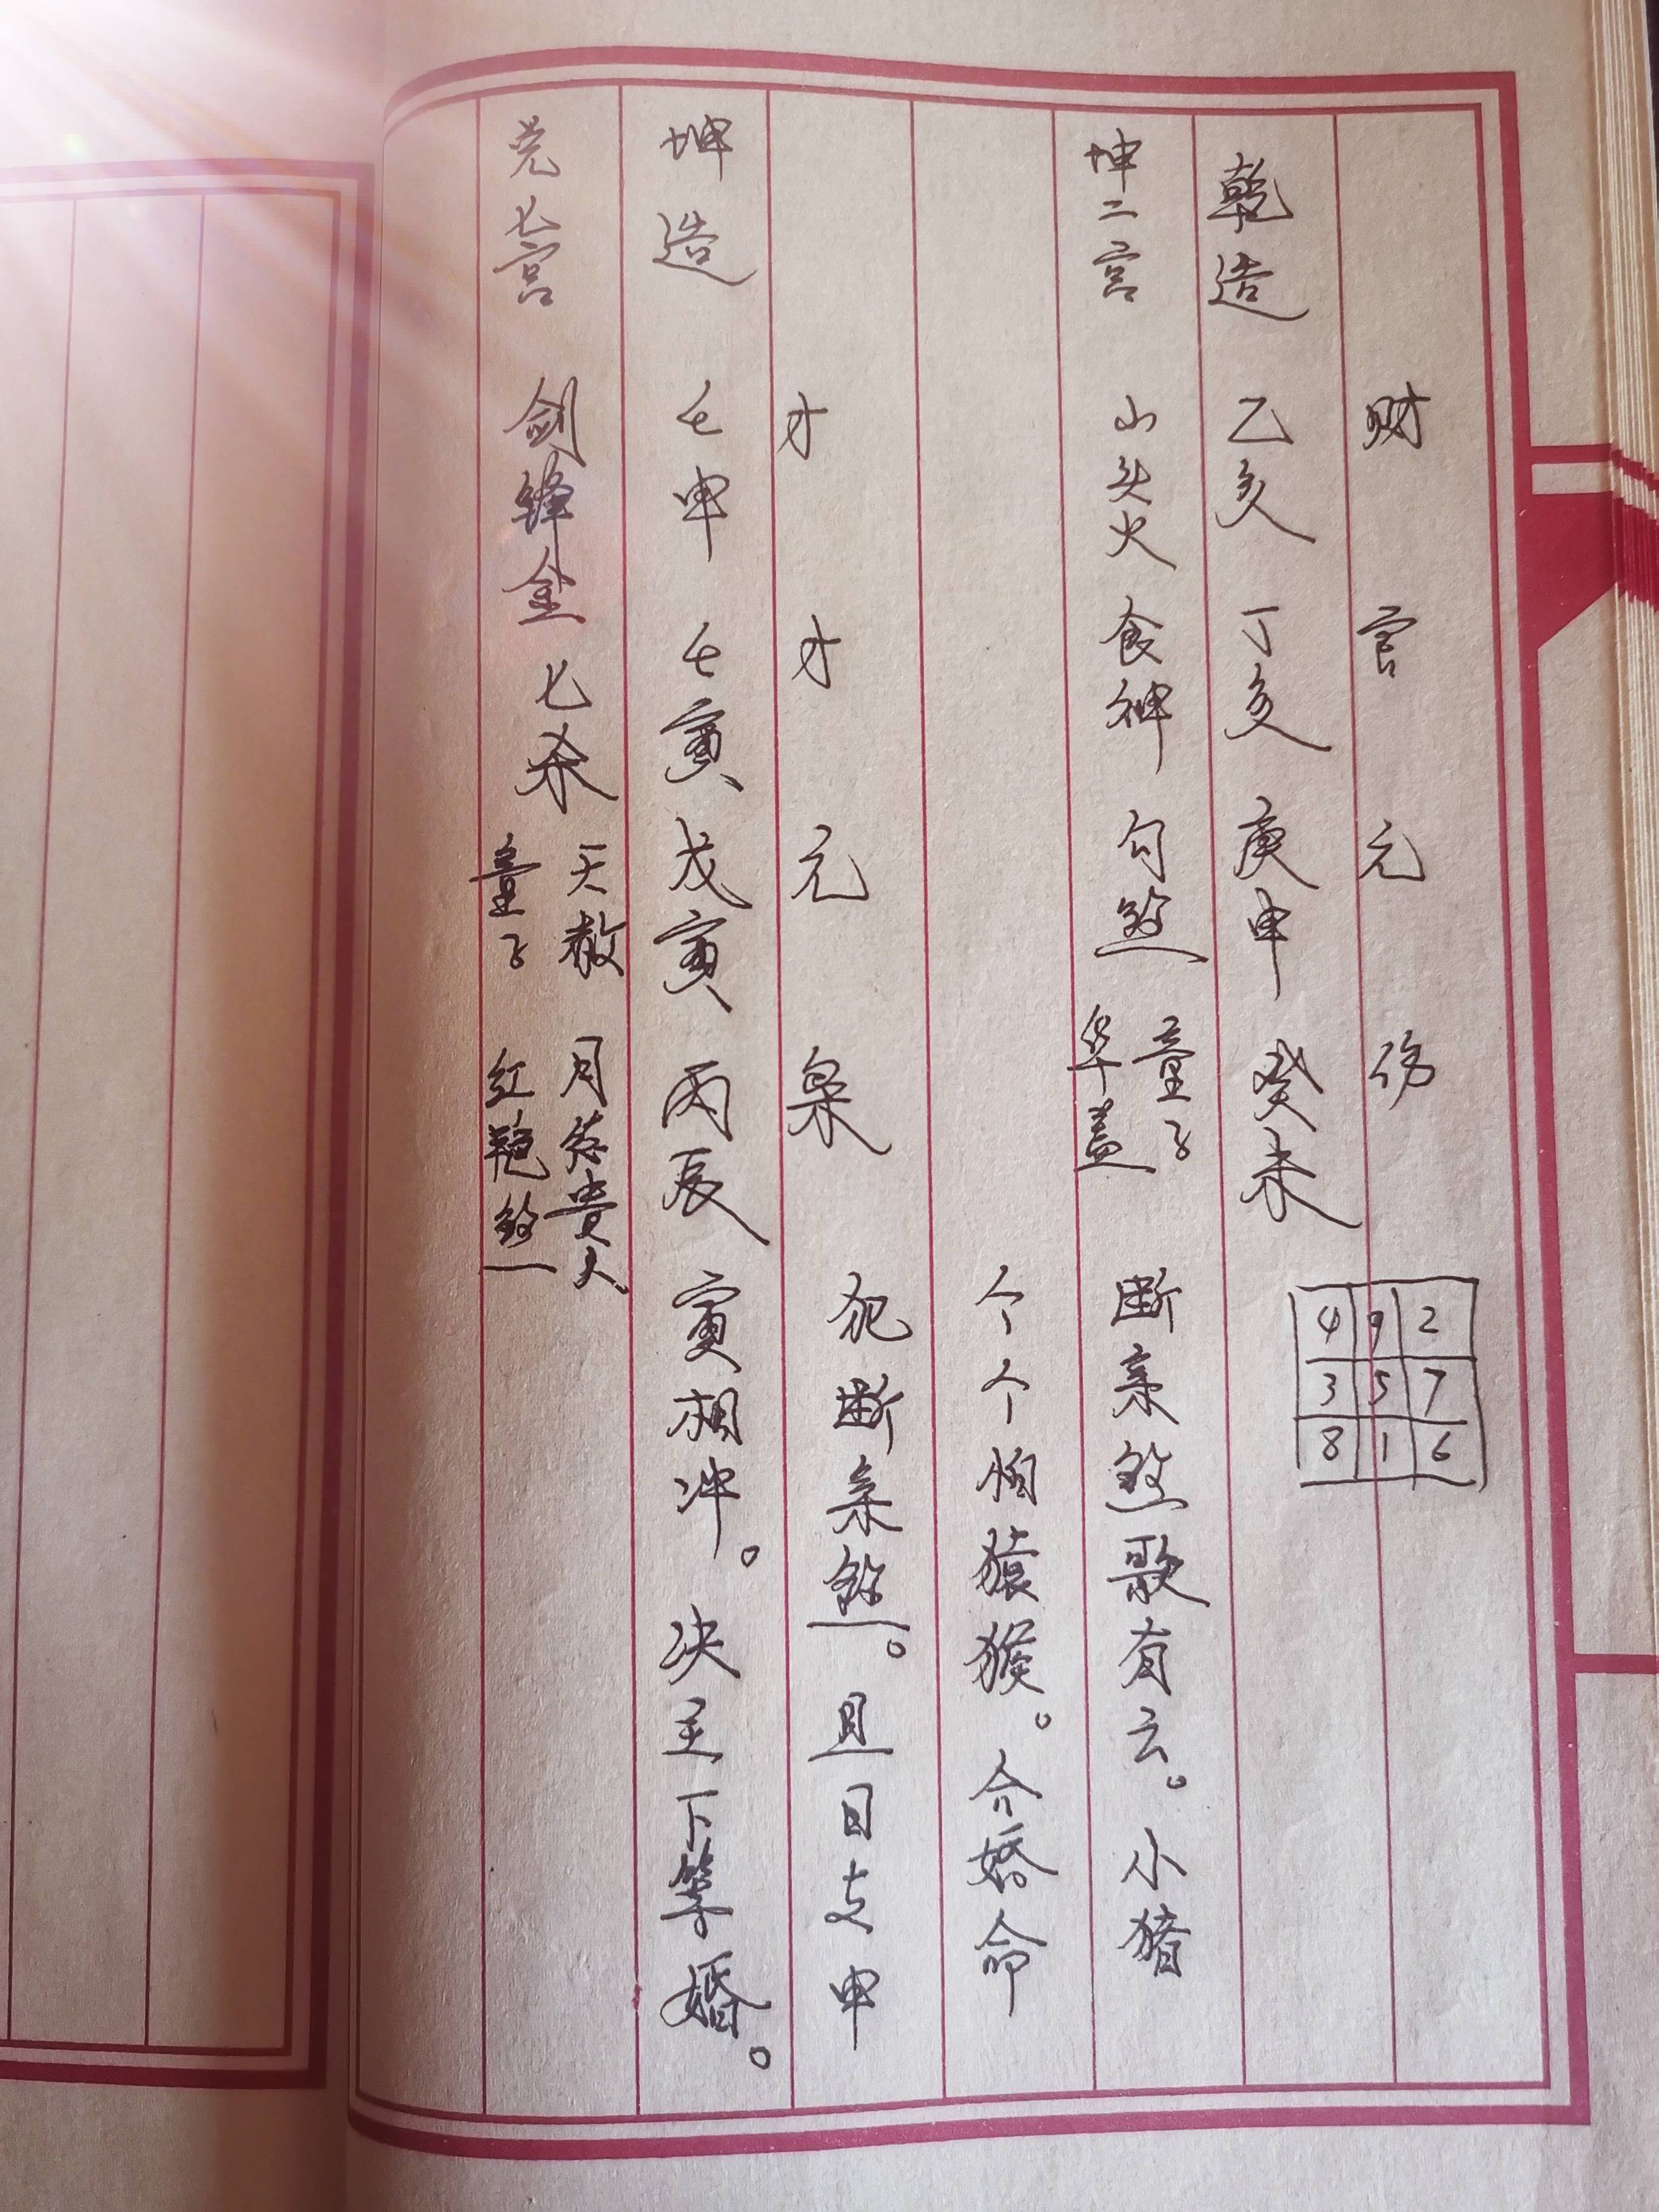 财 官 元 伤
乾造 乙亥 丁亥 庚申 癸未
4 9 2
3 5 7
8 1 6
坤二宫 山头火 食神 勾煞 童子
华盖
断亲煞歌有云。小猪
个个怕猿猴。合婚命
才 才 元 枭 犯断亲煞。且日支申
坤造 壬申 壬寅 戊寅 丙辰 寅相冲。决主下等婚。
兑七宫 剑锋金 七杀 天赦 月德贵人
童子 红艳煞